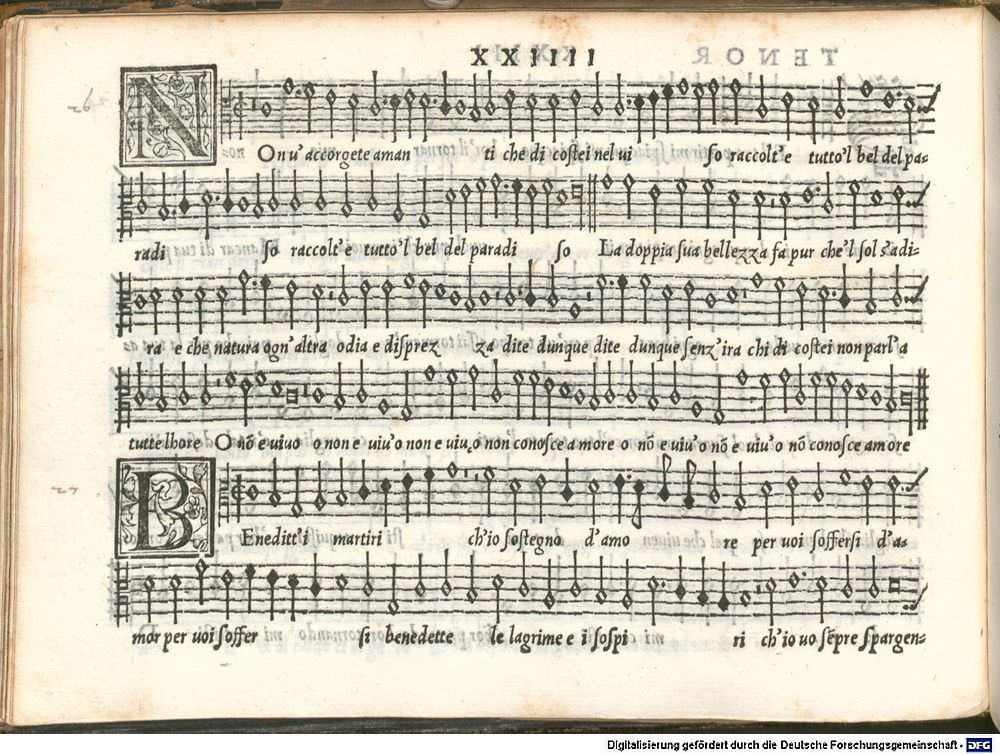 XXIIIII
N
On u' accorgete aman ti che di costei nel ui so raccolt'e tutto'l bel del pa-
radi so raccolt'e tutto'l bel del paradi so La doppia sua bellezza fa pur che'l sol s'adi-
ra e che natura ogn'altra odia e disprez za dite dunque dite dunque senz'ira chi di costei non parl'a
tutte lhore O nõ e uiuo o non e uiu'o non e uiu'o non conosce amore o nõ e uiu'o nõ e uiu'o nõ conosce amore
B
Eneditt'i martiri ch'io sostegno d'amo re per uoi soffersi d'a-
mor per uoi soffer si benedette le lagrime e i sospi ri ch'io uo sẽpre spargen-
Digitalisierung gefördert durch die Deutsche Forschungsgemeinschaft - DFG